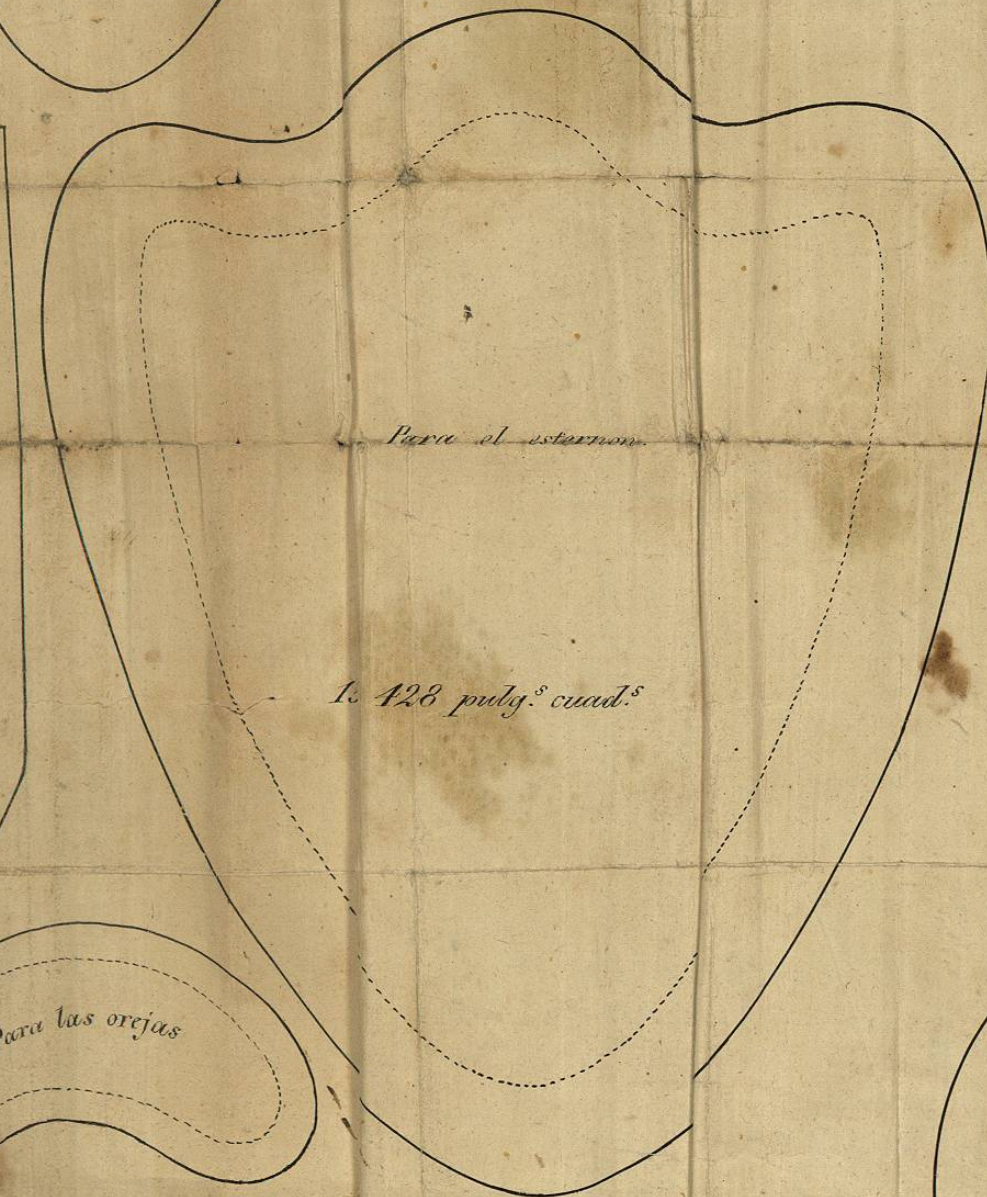 Para el esternon.
428 pulg.s cuad.s
Para las orejas